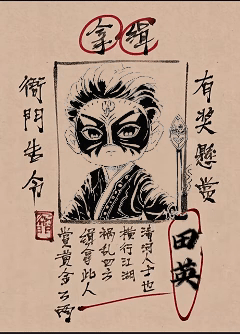 缉拿
有奖悬赏
衙門生今
田英
清河人士也
横行江湖
祸乱四方
缉拿此人
赏黄金百两